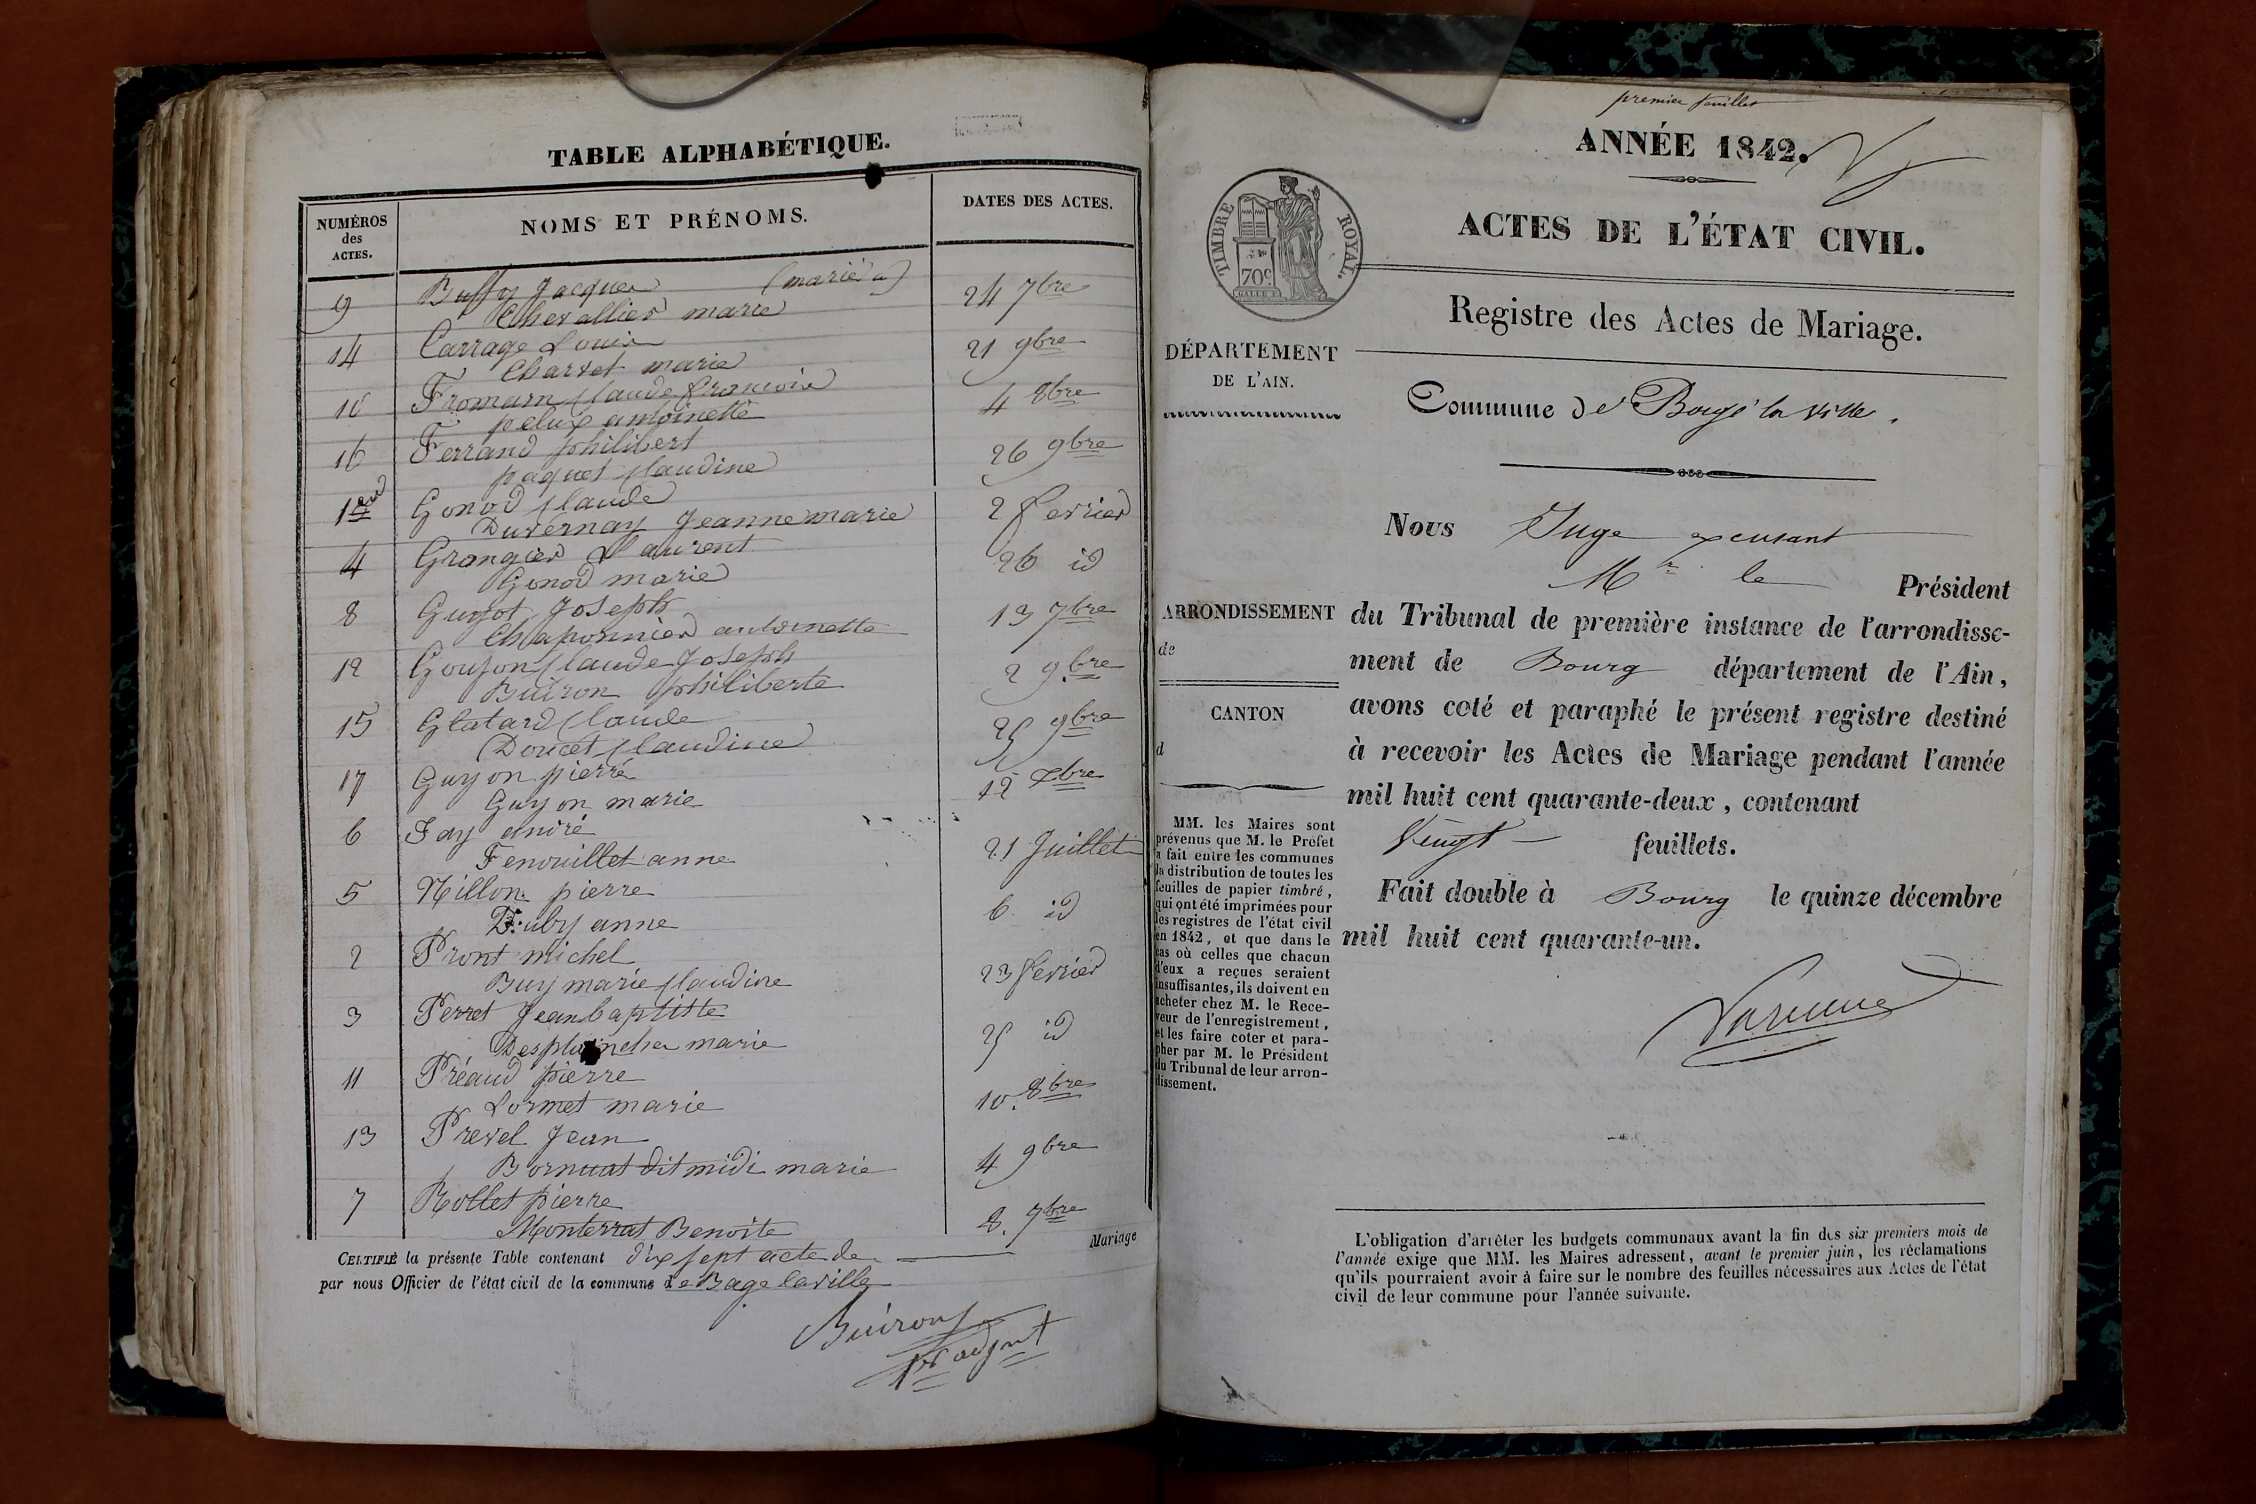 TABLE ALPHABÉTIQUE.
NUMÉROS des ACTES.
NOMS ET PRÉNOMS.
DATES DES ACTES.
9 Buffy Jacques (marié a) 24 7bre
Chevallier marie
14 Carrage Louis 21 9bre
Charvet marie
10 Fromam Claude francoise 4 8bre
pelux antoinette
16 Ferrand philibert 26 9bre
paquet Claudine
1er Gonod Claude 2 fevrier
Duvernay Jeanne marie
4 Grangier Laurent 26 id
Gonod marie
8 Guyot Joseph 13 7bre
Chaponnier antoinette
12 Goujon Claude Joseph 2 9bre
Buiron philiberte
15 Glatard Claude 25 9bre
Doucet Claudine
17 Guyon pierre 12 xbre
Guyon marie
6 Jay andré 21 Juillet
Fenouillet anne
5 Millon pierre 6 id
Duby anne
2 Pront michel 23 fevrier
Buy marie Claudine
3 Perret Jean baptiste 25 id
Desplanches marie
11 Préaud pierre 10. 8bre
Lormet marie
13 Prevel Jean 4 9bre
Bornuat dit midi marie
7 Rollet pierre 8. 7bre
Monterrat Benoite
CERTIFIÉ la présente Table contenant dix sept acte de Mariage
par nous Officier de l'état civil de la commune de Bage la ville
Buiron
adjnt
premier feuillet
ANNÉE 1842.
TIMBRE ROYAL.
70c
ACTES DE L'ÉTAT CIVIL.
Registre des Actes de Mariage.
DÉPARTEMENT
DE L'AIN.
Commune de Bagé la Ville.
Nous Juge
Mr le Président
ARRONDISSEMENT
de
CANTON
d
du Tribunal de première instance de l'arrondisse-
ment de Bourg département de l'Ain,
avons coté et paraphé le présent registre destiné
à recevoir les Actes de Mariage pendant l'année
mil huit cent quarante-deux, contenant
Vingt feuillets.
Fait double à Bourg le quinze décembre
mil huit cent quarante-un.
MM. les Maires sont
prévenus que M. le Préfet
a fait entre les communes
la distribution de toutes les
feuilles de papier timbré,
qui ont été imprimées pour
les registres de l'état civil
en 1842, et que dans le
cas où celles que chacun
d'eux a reçues seraient
insuffisantes, ils doivent en
acheter chez M. le Rece-
veur de l'enregistrement,
et les faire coter et para-
pher par M. le Président
du Tribunal de leur arron-
dissement.
L'obligation d'arrêter les budgets communaux avant la fin des six premiers mois de
l'année exige que MM. les Maires adressent, avant le premier juin, les réclamations
qu'ils pourraient avoir à faire sur le nombre des feuilles nécessaires aux Actes de l'état
civil de leur commune pour l'année suivante.